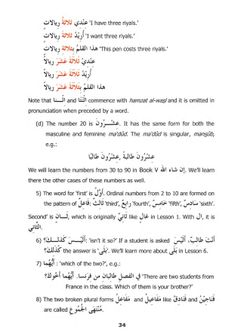 عِنْدِيْ ثَلَاثَةُ رِيَالَاتٍ 'I have three riyals.'
أُرِيْدُ ثَلَاثَةَ رِيَالَاتٍ 'I want three riyals.'
هٰذَا القَلَمُ بِثَلَاثَةِ رِيَالَاتٍ 'This pen costs three riyals.'
عِنْدِيْ ثَلَاثَةَ عَشَرَ رِيَالاً
أُرِيْدُ ثَلَاثَةَ عَشَرَ رِيَالاً
هٰذَا القَلَمُ بِثَلَاثَةَ عَشَرَ رِيَالاً
commence with hamzat al-waṣl and it is omitted in
pronunciation when preceded by a word.
(d) The number 20 is عِشْرُوْنَ. It has the same form for both the
masculine and feminine ma'dūd. The ma'dūd is singular, manṣūb,
e.g.:
عِشْرُوْنَ طَالِبًا ,عِشْرُوْنَ طَالِبَةً
We will learn the numbers from 30 to 90 in Book V إن شاء الله. We'll learn
there the other cases of these numbers as well.
5) The word for 'first' is أَوَّلُ. Ordinal numbers from 2 to 10 are formed on
the pattern of فَاعِلٌ: ثَالِثٌ 'third', رَابِعٌ 'fourth', خَامِسٌ 'fifth', سَادِسٌ 'sixth'.
'Second' is ثَانٍ, which is originally ثَانِيٌ like غَالٍ in Lesson 1. With ال, it is
الثَّانِي.
6) أَلَيْسَ كَذَلِكَ؟: 'isn't it so?' If a student is asked أَلَيْسَ
the answer is بَلَى. We'll learn more about بَلَى in Lesson 6.
7) أَيُّهُمَا: 'which of the two?', e.g.:
في الفَصْلِ طَالِبَانِ مِن فَرَنْسَا. أَيُّهُمَا أَخُوكَ؟ 'There are two students from
France in the class. Which of them is your brother?'
8) The two broken plural forms مَفَاعِلُ and مَفَاعِيْلُ like فَنَادِقُ and فَنَاجِيْنُ
are called مُنْتَهَى الجُمُوْعِ.
34